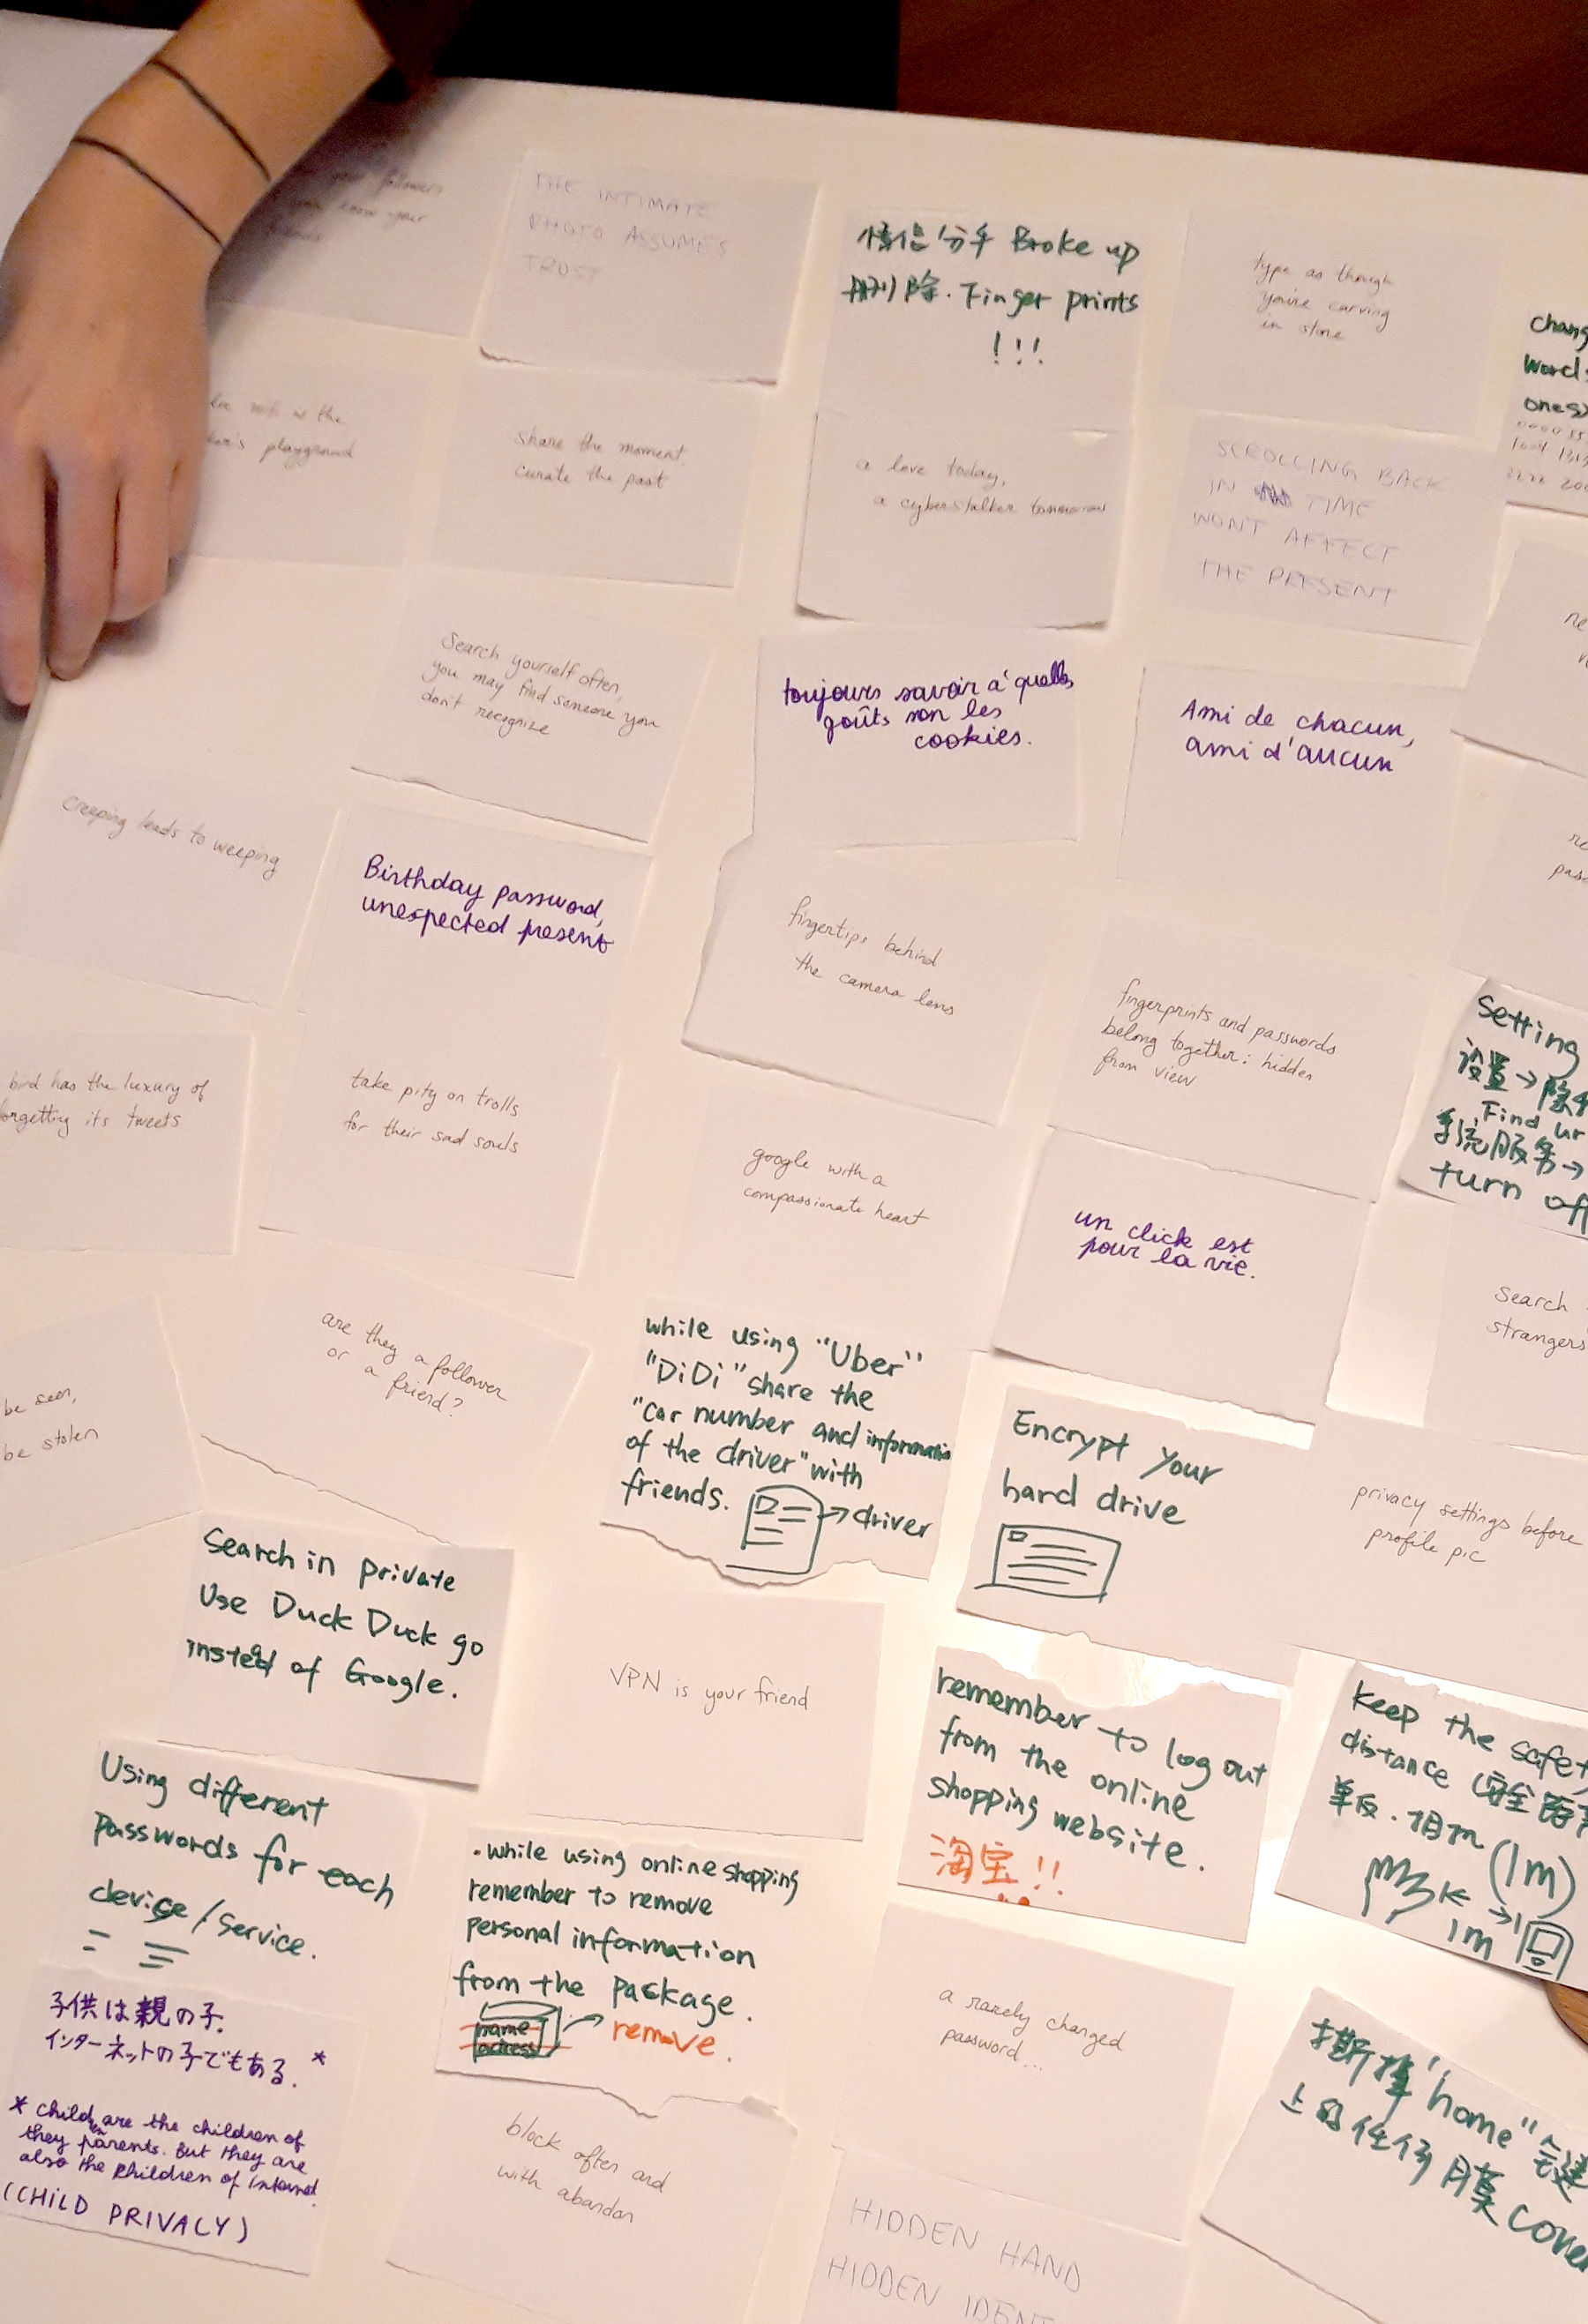 followers
know your
THE INTIMATE
PHOTO ASSUMES
TRUST
分手 Broke up
删除. Finger prints
!!!
type as though
you're carving
in stone
Chang
word
ones
the
playground
share the moment,
curate the past
a love today,
a cyberstalker tomorrow
SCROLLING BACK
IN TIME
WONT AFFECT
THE PRESENT
Search yourself often,
you may find someone you
don't recognize
toujours savoir à quells
goûts son les
cookies.
Ami de chacun,
ami d'aucun
creeping leads to weeping
Birthday password,
unexpected present
fingertips behind
the camera lens
fingerprints and passwords
belong together: hidden
from view
Setting
设置→
Find ur
系统服务→
turn off
bird has the luxury of
forgetting its tweets
take pity on trolls
for their sad souls
google with a
compassionate heart
un click est
pour la vie.
search
strangers
be seen,
be stolen
are they a follower
or a friend?
while using "Uber"
"DiDi" share the
"car number and informatio
of the driver" with
friends.
→driver
Encrypt your
hard drive
privacy settings before
profile pic
Search in private
Use Duck Duck go
instead of Google.
VPN is your friend
remember to log out
from the online
shopping website.
淘宝!!
keep the safet
distance (安全
(1m)
1m
Using different
passwords for each
device/service.
.while using online shopping
remember to remove
personal information
from the package.
name
adress
remove.
a rarely changed
password...
子供は親の子.
インターネットの子でもある.*
* children are the children of
they parents. But they are
also the children of internet.
(CHILD PRIVACY)
block often and
with abandon
"home"键
上的任何膜 cove
HIDDEN HAND
HIDDEN IDENT